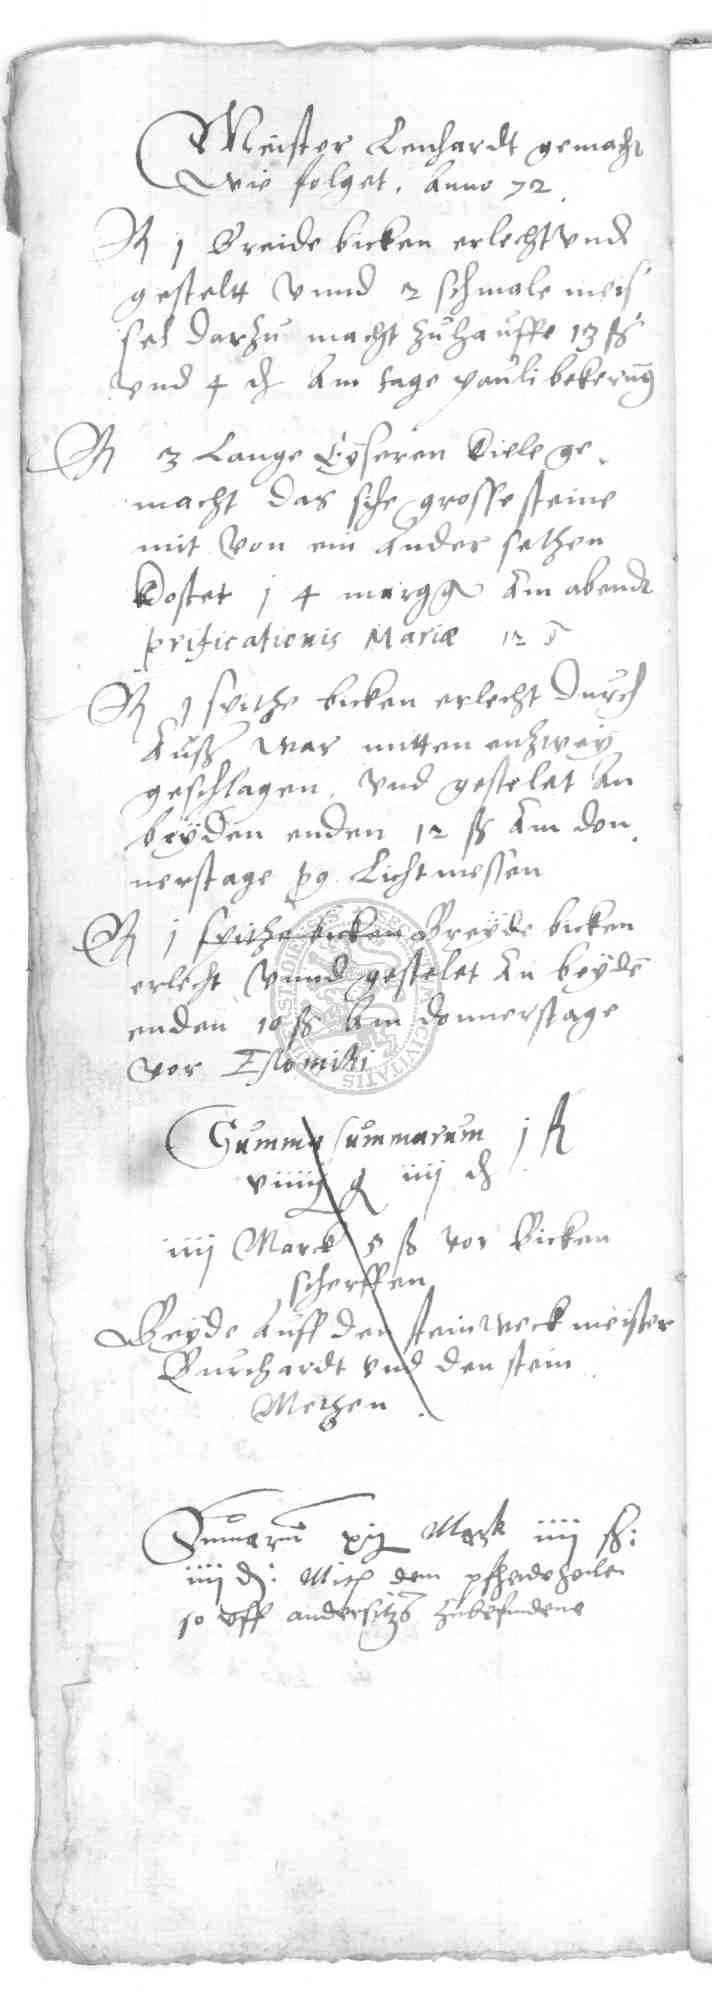 Meister Lenhardt gemacht
wie folget. Anno 72.
1 Breide bicken erlecht vnd
gestelt vnnd 2 schmale meis
sel darzu macht zuhauffe 13 ß
vnd 4 d Am tage pauli bekerung
3 Lange Eyseren Kiele ge
macht das sche grosse steine
mit von ein ander setzen
Kostet j 4 Am abendt
prificationis Mariæ 12
1 spitze bicken erlecht durch
Auß war mitten entzwey
geschlagen, vnd gestelet An
beyden enden 12 ß Am don
nerstage Lichtmessen
j spitze bicken Breyde bicken
erlecht vnnd gestelet An beyden
enden 10 ß Am donnerstage
vor Estomihi
Summa summarum j
iiij d
iiij Marck 5 ß vor Bicken
scherffen
Beyde Auff den steinweck meister
Burchardt vnd den stein
Metzen
iiij ß:
iiij d: dem
so vff zubefindene